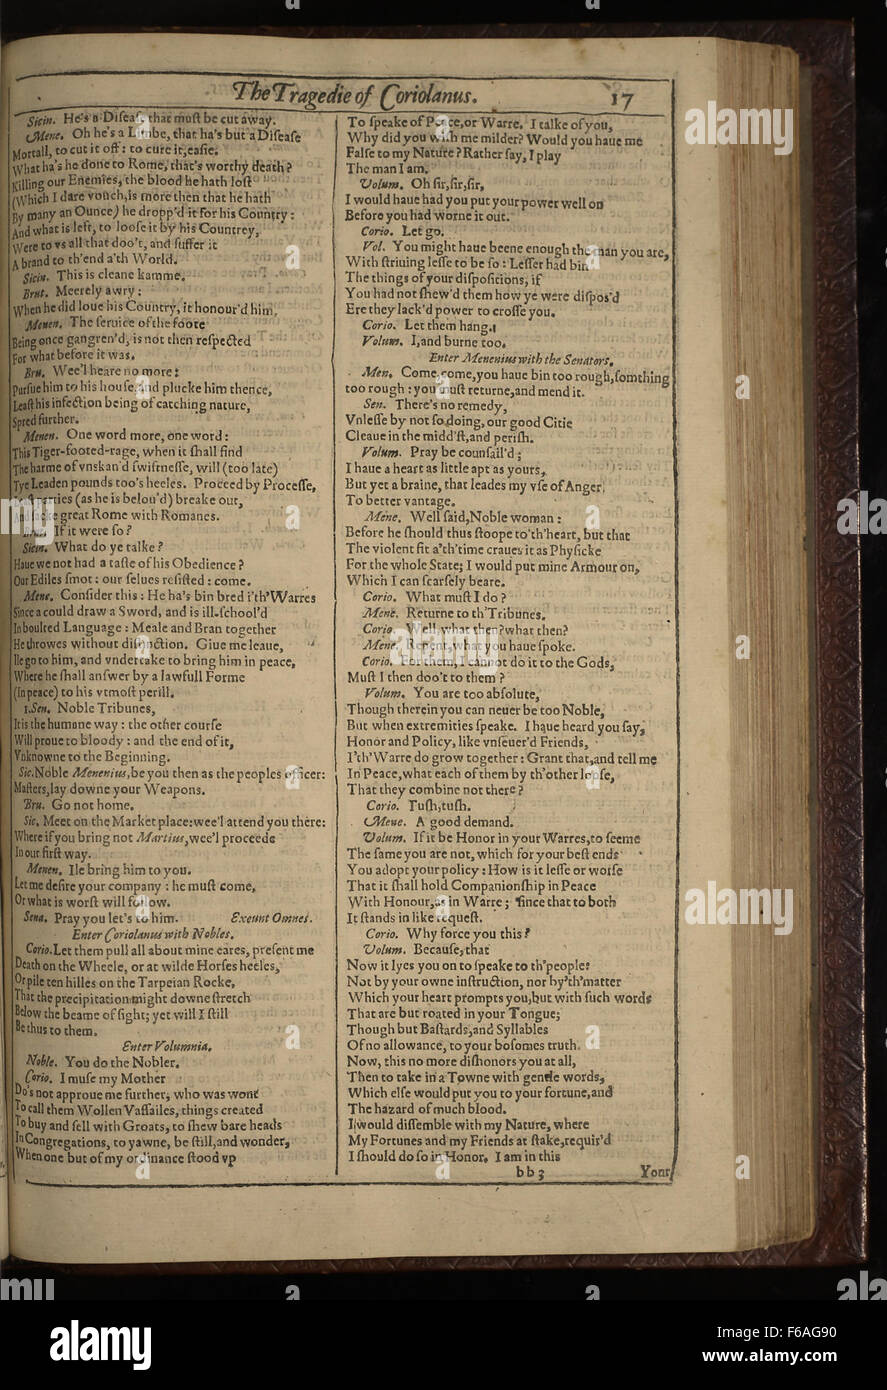 The Tragedie of Coriolanus. 17
Sicin. He's a Diſeaſe that muſt be cut away.
Mene. Oh he's a Limbe, that ha's but a Diſeaſe
Mortall, to cut it off: to cure it, eaſie.
What ha's he done to Rome, that's worthy death?
Killing our Enemies, the blood he hath loſt
(Which I dare vouch, is more then that he hath
By many an Ounce) he dropp'd it for his Country:
And what is left, to looſe it by his Countrey,
Were to vs all that doo't, and ſuffer it
A brand to th'end a'th World.
Sicin. This is cleane kamme.
Brut. Meerely awry:
When he did loue his Country, it honour'd him.
Menen. The ſeruice of the foote
Being once gangren'd, is not then reſpected
For what before it was.
Bru. Wee'l heare no more:
Purſue him to his houſe, and plucke him thence,
Leaſt his infection being of catching nature,
Spred further.
Menen. One word more, one word:
This Tiger-footed-rage, when it ſhall find
The harme of vnskan'd ſwiftneſſe, will (too late)
Tye Leaden pounds too's heeles. Proceed by Proceſſe,
parties (as he is belou'd) breake out,
And ſacke great Rome with Romanes.
If it were ſo?
Sicin. What do ye talke?
Haue we not had a taſte of his Obedience?
Our Ediles ſmot: our ſelues reſiſted: come.
Mene. Conſider this: He ha's bin bred i'th'Warres
Since a could draw a Sword, and is ill-ſchool'd
In boulted Language: Meale and Bran together
He throwes without diſtinction. Giue me leaue,
Ile go to him, and vndertake to bring him in peace,
Where he ſhall anſwer by a lawfull Forme
(In peace) to his vtmoſt perill.
1.Sen. Noble Tribunes,
It is the humane way: the other courſe
Will proue to bloody: and the end of it,
Vnknowne to the Beginning.
Sic. Noble Menenius, be you then as the peoples officer:
Maſters, lay downe your Weapons.
Bru. Go not home.
Sic. Meet on the Market place: wee'l attend you there:
Where if you bring not Martius, wee'l proceede
In our firſt way.
Menen. Ile bring him to you.
Let me deſire your company: he muſt come,
Or what is worſt will follow.
Sena. Pray you let's to him. Exeunt Omnes.
Enter Coriolanus with Nobles.
Corio. Let them pull all about mine eares, preſent me
Death on the Wheele, or at wilde Horſes heeles,
Or pile ten hilles on the Tarpeian Rocke,
That the precipitation might downe ſtretch
Below the beame of ſight; yet will I ſtill
Be thus to them.
Enter Volumnia.
Noble. You do the Nobler.
Corio. I muſe my Mother
Do's not approue me further, who was wont
To call them Wollen Vaſſailes, things created
To buy and ſell with Groats, to ſhew bare heads
In Congregations, to yawne, be ſtill, and wonder,
When one but of my ordinance ſtood vp
To ſpeake of Peace, or Warre. I talke of you,
Why did you wiſh me milder? Would you haue me
Falſe to my Nature? Rather ſay, I play
The man I am.
Volum. Oh ſir, ſir, ſir,
I would haue had you put your power well on
Before you had worne it out.
Corio. Let go.
Vol. You might haue beene enough the man you are,
With ſtriuing leſſe to be ſo: Leſſer had bin
The things of your diſpoſitions, if
You had not ſhew'd them how ye were diſpos'd
Ere they lack'd power to croſſe you.
Corio. Let them hang.
Volum. I, and burne too.
Enter Menenius with the Senators.
Men. Come, come, you haue bin too rough, ſomthing
too rough: you muſt returne, and mend it.
Sen. There's no remedy,
Vnleſſe by not ſo doing, our good Citie
Cleaue in the midd'ſt, and periſh.
Volum. Pray be counſail'd;
I haue a heart as little apt as yours,
But yet a braine, that leades my vſe of Anger
To better vantage.
Mene. Well ſaid, Noble woman:
Before he ſhould thus ſtoope to'th'heart, but that
The violent fit a'th'time craues it as Phyſicke
For the whole State; I would put mine Armour on,
Which I can ſcarſely beare.
Corio. What muſt I do?
Mene. Returne to th'Tribunes.
Corio. Well, what then? what then?
Mene. Repent, what you haue ſpoke.
Corio. For them, I cannot do it to the Gods,
Muſt I then doo't to them?
Volum. You are too abſolute,
Though therein you can neuer be too Noble,
But when extremities ſpeake. I haue heard you ſay,
Honor and Policy, like vnſeuer'd Friends,
I'th'Warre do grow together: Grant that, and tell me
In Peace, what each of them by th'other looſe,
That they combine not there?
Corio. Tuſh, tuſh.
Mene. A good demand.
Volum. If it be Honor in your Warres, to ſeeme
The ſame you are not, which for your beſt ends
You adopt your policy: How is it leſſe or worſe
That it ſhall hold Companionſhip in Peace
With Honour, as in Warre; ſince that to both
It ſtands in like requeſt.
Corio. Why force you this?
Volum. Becauſe, that
Now it lyes you on to ſpeake to th'people:
Not by your owne inſtruction, nor by'th'matter
Which your heart prompts you, but with ſuch words
That are but roated in your Tongue;
Though but Baſtards, and Syllables
Of no allowance, to your boſomes truth.
Now, this no more diſhonors you at all,
Then to take in a Towne with gentle words,
Which elſe would put you to your fortune, and
The hazard of much blood.
I would diſſemble with my Nature, where
My Fortunes and my Friends at ſtake, requir'd
I ſhould do ſo in Honor. I am in this
bb3 Your
alamy stock photo
F6AG90
www.alamy.com